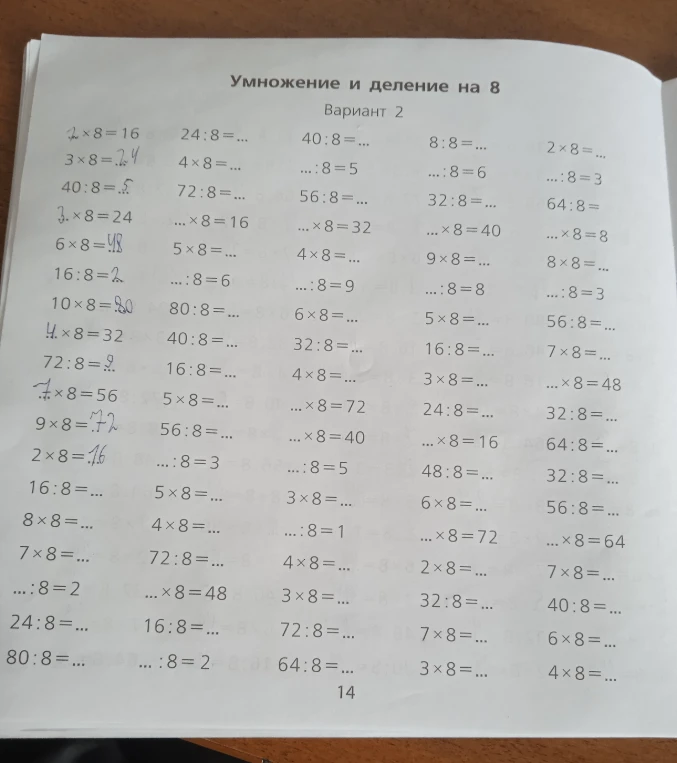 Умножение и деление на 8
Вариант 2
2×8=16 24:8=... 40:8=... 8:8=... 2×8=...
3×8=24 4×8=... ...:8=5 ...:8=6 ...:8=3
40:8=5 72:8=... 56:8=... 32:8=... 64:8=
3×8=24 ...×8=16 ...×8=32 ...×8=40 ...×8=8
6×8=48 5×8=... 4×8=... 9×8=... 8×8=...
16:8=2 ...:8=6 ...:8=9 ...:8=8 ...:8=3
10×8=80 80:8=... 6×8=... 5×8=... 56:8=...
4×8=32 40:8=... 32:8=... 16:8=... 7×8=...
72:8=9 16:8=... 4×8=... 3×8=... ...×8=48
7×8=56 5×8=... ...×8=72 24:8=... 32:8=...
9×8=72 56:8=... ...×8=40 ...×8=16 64:8=...
2×8=16 ...:8=3 ...:8=5 48:8=... 32:8=...
16:8=... 5×8=... 3×8=... 6×8=... 56:8=...
8×8=... 4×8=... ...:8=1 ...×8=72 ...×8=64
7×8=... 72:8=... 4×8=... 2×8=... 7×8=...
...:8=2 ...×8=48 3×8=... 32:8=... 40:8=...
24:8=... 16:8=... 72:8=... 7×8=... 6×8=...
80:8=... ...:8=2 64:8=... 3×8=... 4×8=...
14